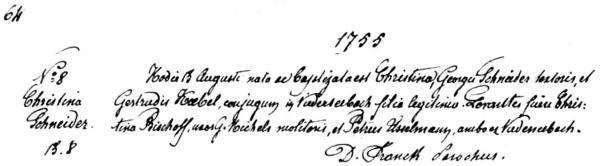 64
1755
No 8
Christina
Schneider.
13.8
Hodie 13 Augusti nata ac baptizata est Christina, Georgii Schneider textoris, et
Gertrudis Koebel, conjugum in Niederseebach filia legitima. Levantes fuere Chris-
tina Bischoff, uxor G. Michels molitoris, et Petrus Isselmann, ambo ex Niederseebach.
D. Franck Parochus.